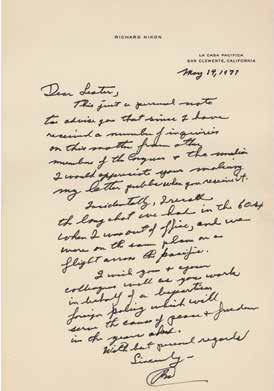 RICHARD NIXON
LA CASA PACIFICA
SAN CLEMENTE, CALIFORNIA
May 19, 1977
Dear Lester,
This just a personal note
to advise you that since I have
received a number of inquiries
on this matter from other
members of the Congress & the media
I would appreciate your making
my letter public when you receive it.
Incidentally, I recall
the long chat we had in the 60's
when I was out of office, and we
were on the same plane on a
flight across the pacific.
I wish you & your
colleagues well as you work
in behalf of a bipartisan
foreign policy which will
serve the cause of peace & freedom
in the years ahead.
With best personal regards
Sincerely -
RN